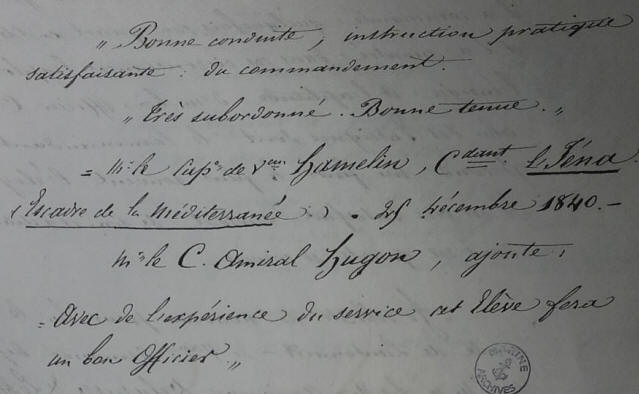 „ Bonne conduite, instruction pratique
satisfaisante : du commandement.
„ Très subordonné. Bonne tenue. „
= Mr. le Capne. de Veau. Hamelin, Cdant. l'Iéna.
(Escadre de la Méditerranée.) - 25 Décembre 1840. -
Mr. le C. Amiral Hugon, ajoute :
= Avec de l'expérience du service cet Elève fera
un bon Officier „
MARINE
ARCHIVES